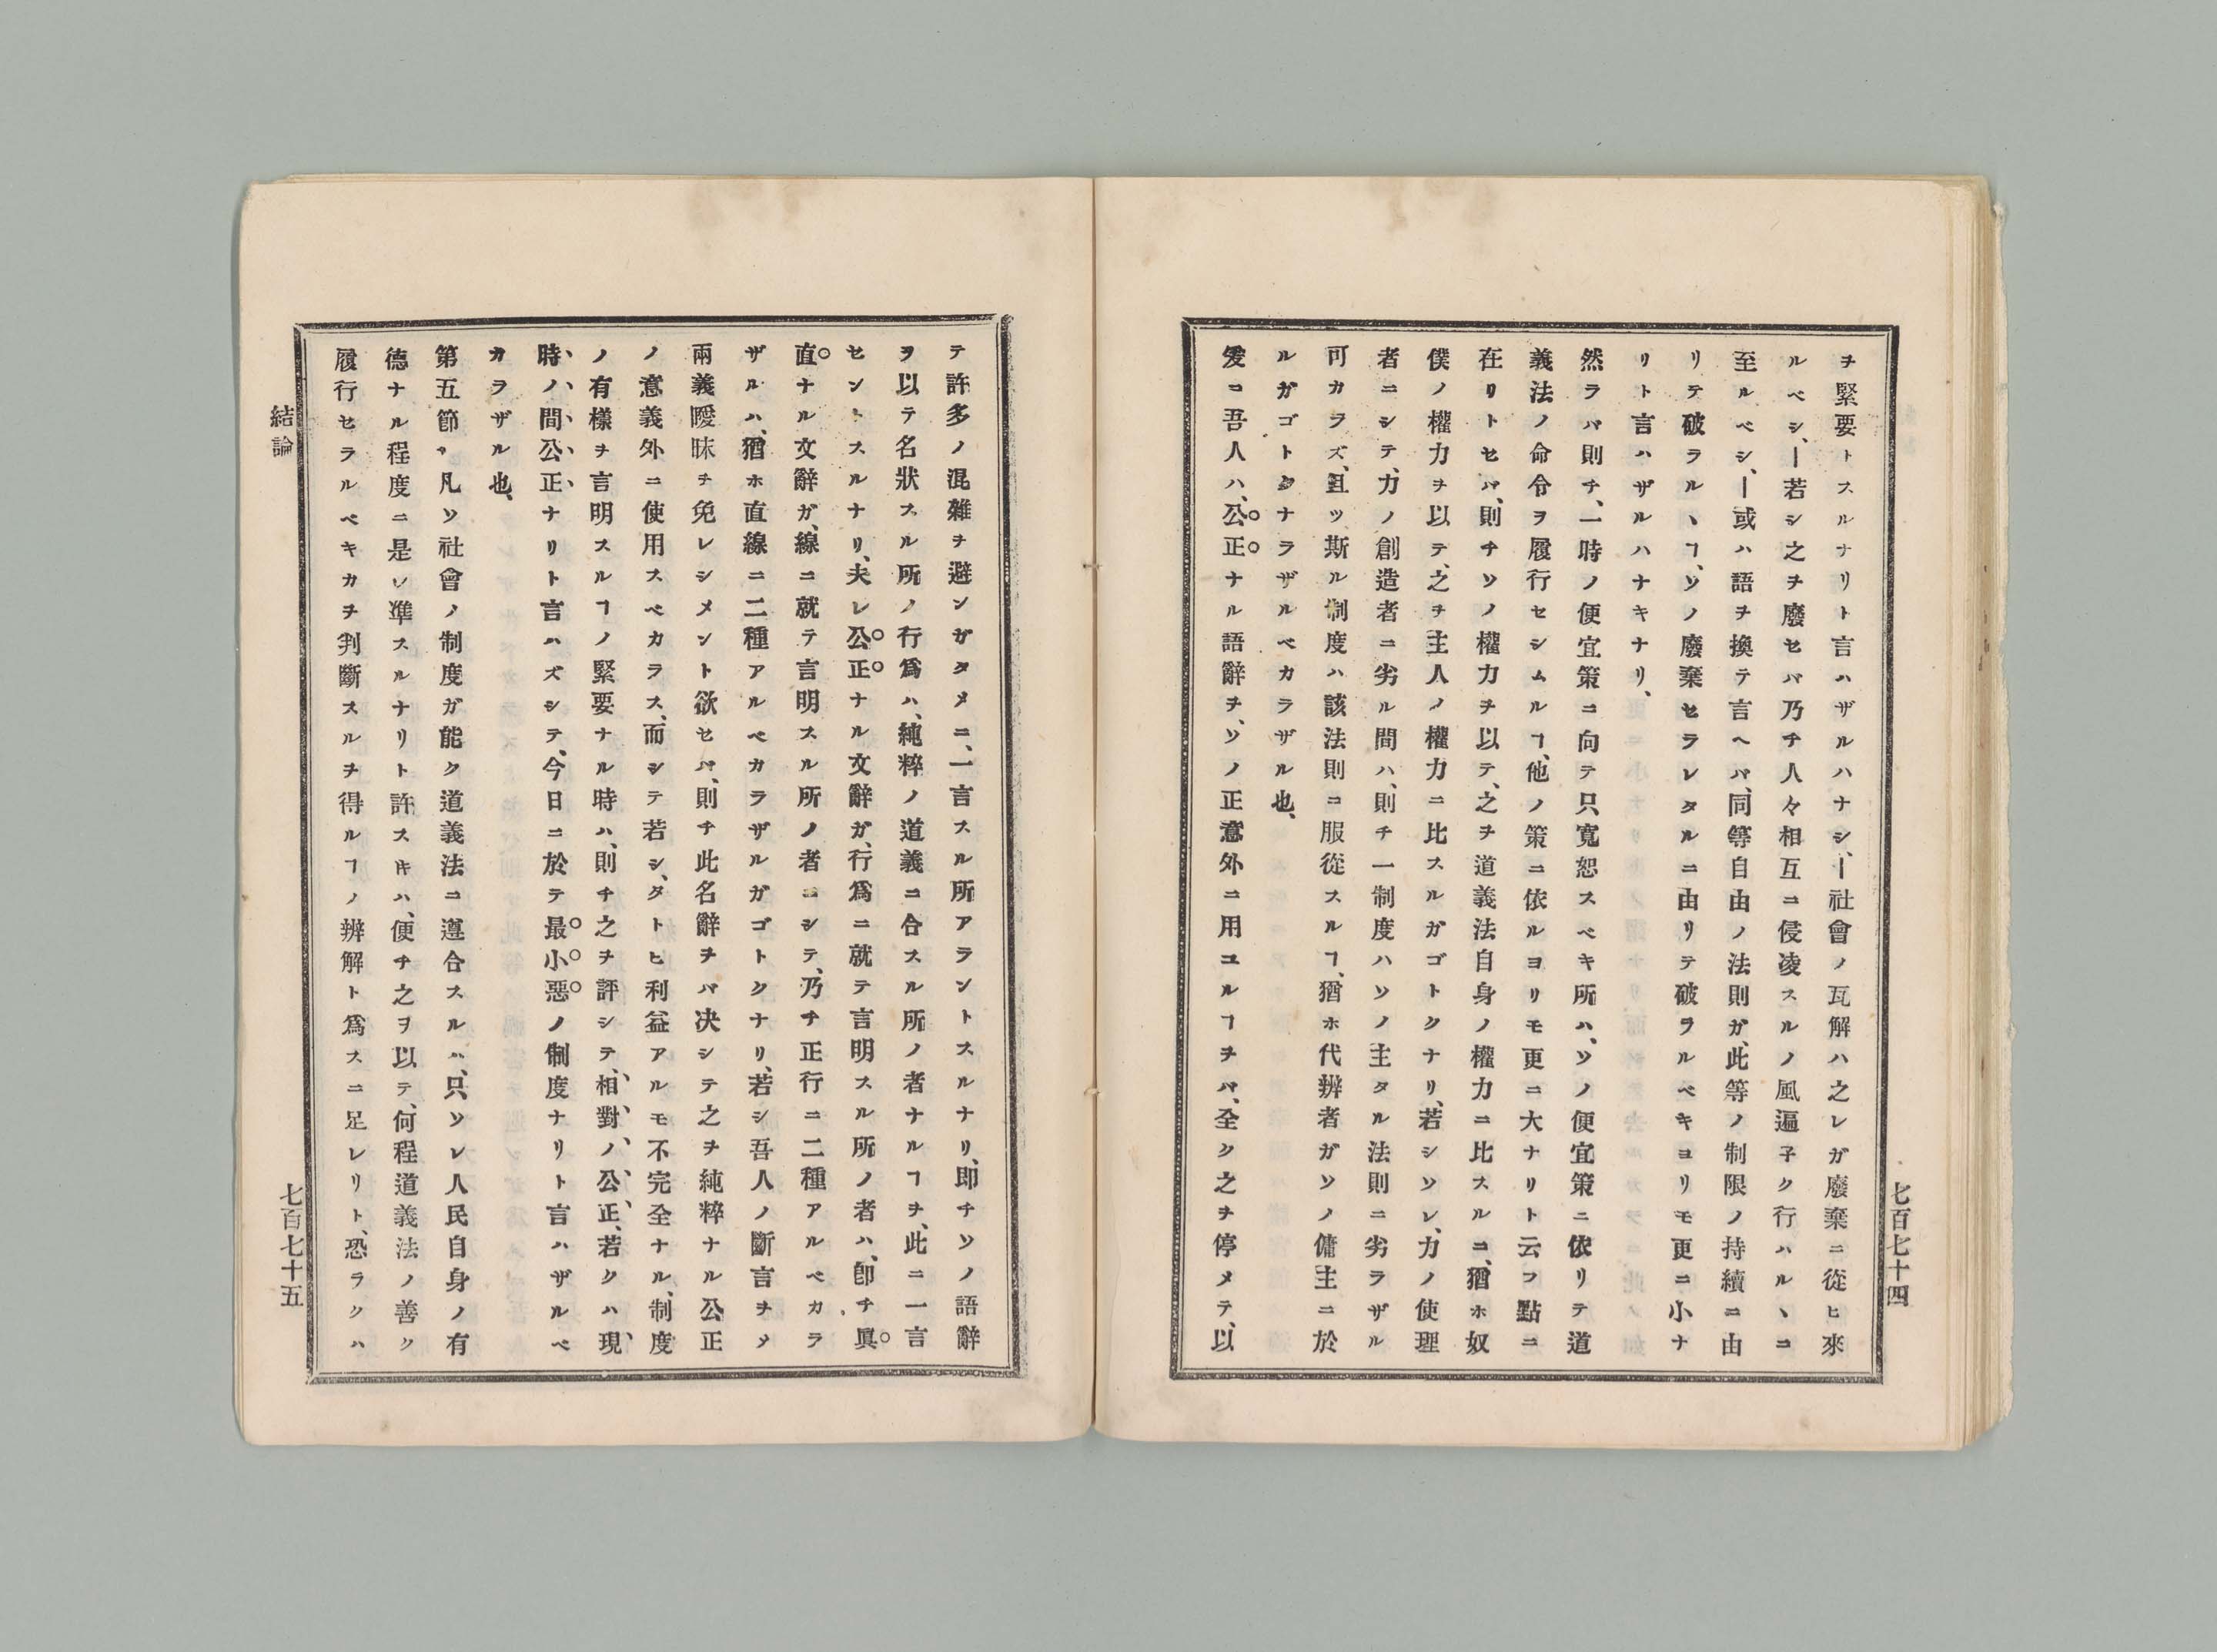 ヲ緊要トスルナリト言ハザルハナシ、―社會ノ瓦解ハ之レガ廢棄ニ從ヒ來
ルベシ、―若シ之ヲ廢セバ乃チ人々相互ニ侵凌スルノ風遍子ク行ハルヽニ
至ルベシ、―或ハ語ヲ換テ言ヘバ、同等自由ノ法則ガ、此等ノ制限ノ持續ニ由
リテ破ラルヽヿ、ソノ廢棄セラレタルニ由リテ破ラルベキヨリモ更ニ小ナ
リト言ハザルハナキナリ、
然ラバ則チ、一時ノ便宜策ニ向テ只寛恕スベキ所ハ、ソノ便宜策ニ依リテ道
義法ノ命令ヲ履行セシムルヿ、他ノ策ニ依ルヨリモ更ニ大ナリト云フ點ニ
在リトセバ、則チソノ權力ヲ以テ、之ヲ道義法自身ノ權力ニ比スルニ、猶ホ奴
僕ノ權力ヲ以テ、之ヲ主人ノ權力ニ比スルガゴトクナリ、若シソレ、力ノ使理
者ニシテ、力ノ創造者ニ劣ル間ハ、則チ一制度ハソノ主タル法則ニ劣ラザル
可カラズ、且ツ斯ル制度ハ該法則ニ服從スルヿ、猶ホ代辨者ガソノ傭主ニ於
ルガゴトクナラザルベカラザル也、
爰ニ吾人ハ、公正ナル語辭ヲ、ソノ正意外ニ用ユルヿヲバ、全ク之ヲ停メテ、以
七百七十四
テ許多ノ混雜ヲ避ンガタメニ、一言スル所アラントスルナリ、即チソノ語辭
ヲ以テ名狀スル所ノ行爲ハ、純粹ノ道義ニ合スル所ノ者ナルヿヲ、此ニ一言
セントスルナリ、夫レ公正ナル文辭ガ、行爲ニ就テ言明スル所ノ者ハ、卽チ眞
直ナル文辭ガ、線ニ就テ言明スル所ノ者ニシテ、乃チ正行ニ二種アルベカラ
ザルハ、猶ホ直線ニ二種アルベカラザルガゴトクナリ、若シ吾人ノ斷言ヲメ
兩義曖昧ヲ免レシメント欲セバ、則チ此名辭ヲバ决シテ之ヲ純粹ナル公正
ノ意義外ニ使用スベカラス、而シテ若シ、タトヒ利益アルモ不完全ナル、制度
ノ有樣ヲ言明スルヿノ緊要ナル時ハ、則チ之ヲ評シテ、相對ノ公正、若クハ現
時ノ間公正ナリト言ハズシテ、今日ニ於テ最小惡ノ制度ナリト言ハザルベ
カラザル也、
第五節 凡ソ社會ノ制度ガ能ク道義法ニ遵合スルハ、只ソレ人民自身ノ有
德ナル程度ニ是レ準スルナリト許スキハ、便チ之ヲ以テ、何程道義法ノ善ク
履行セラルベキカヲ判斷スルヲ得ルヿノ辨解ト爲スニ足レリト、恐ラクハ
結論
七百七十五